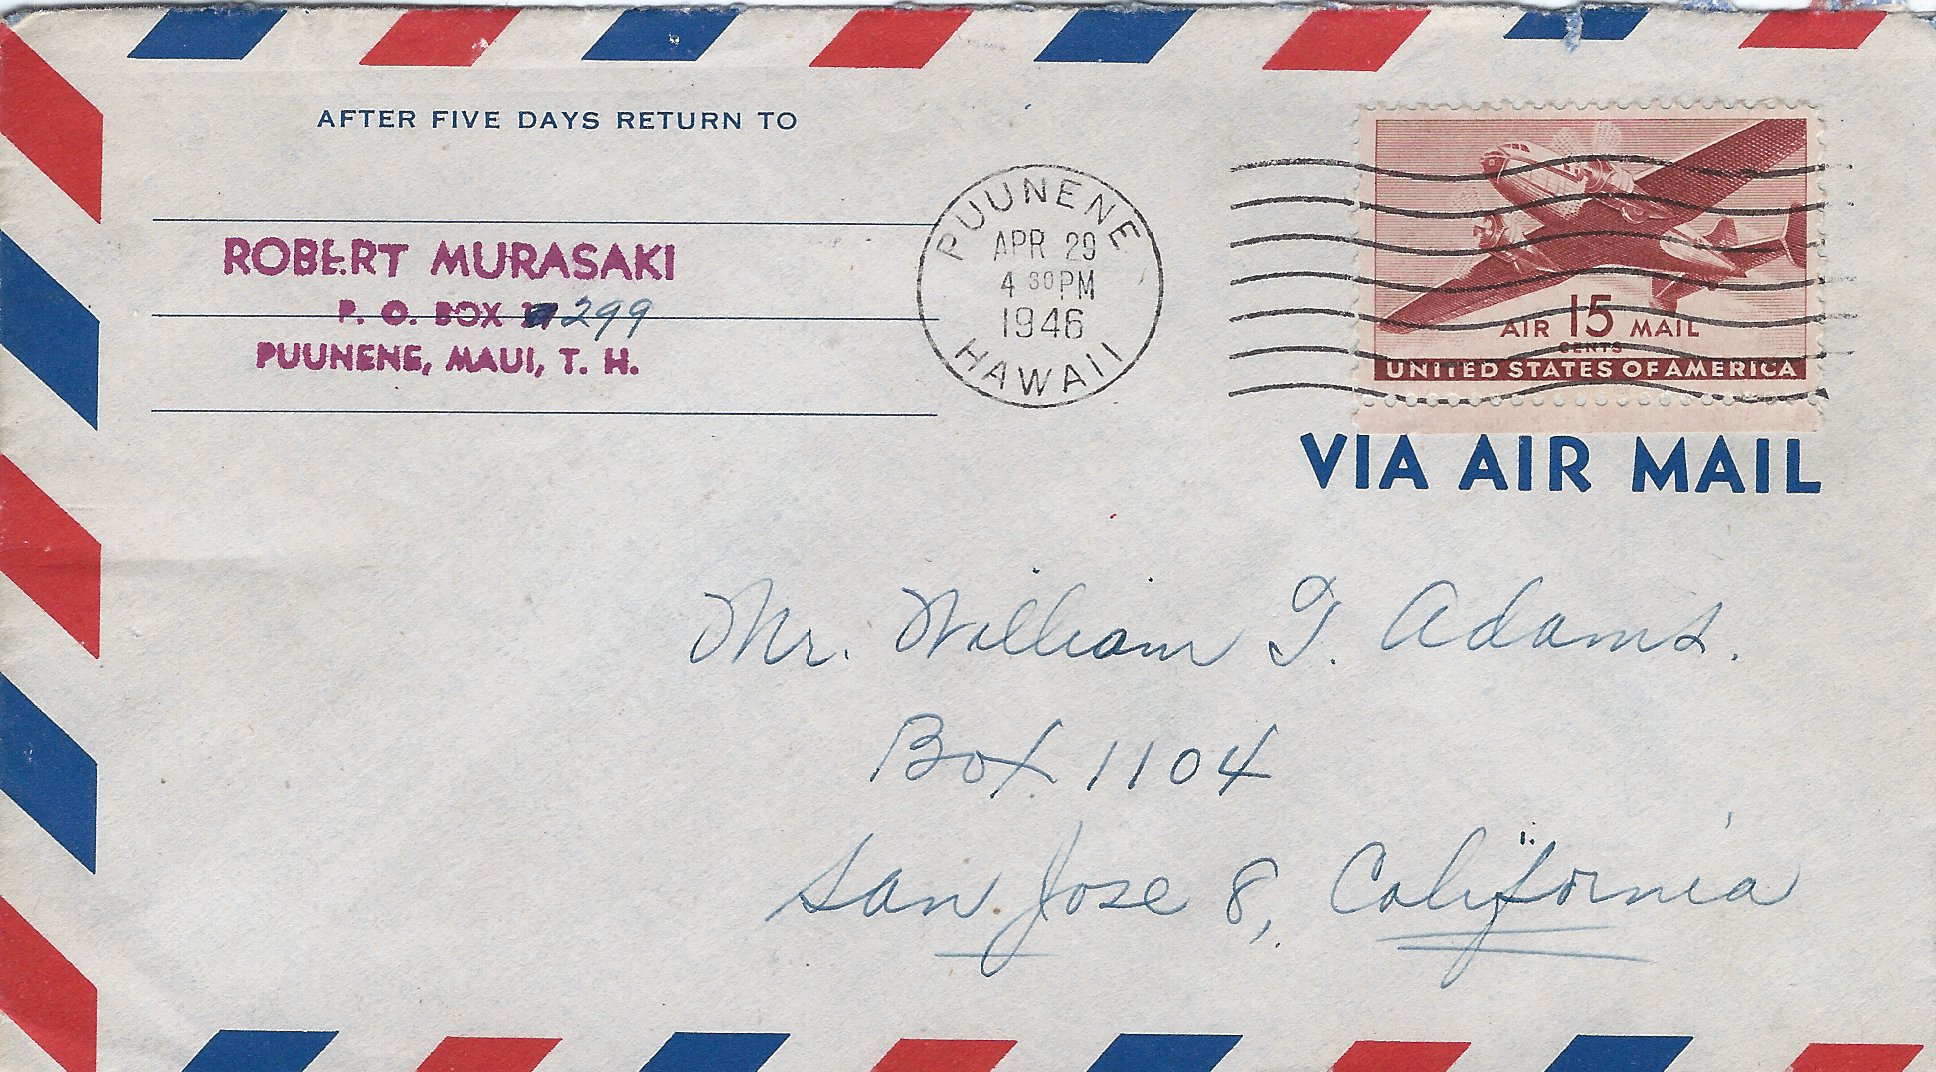 AFTER FIVE DAYS RETURN TO
ROBERT MURASAKI
P. O. BOX 299
PUUNENE, MAUI, T. H.
PUUNENE
APR 29
4 30 PM
1946
HAWAII
AIR 15 MAIL
CENTS
UNITED STATES OF AMERICA
VIA AIR MAIL
Mr. William T. Adams.
Box 1104
San Jose 8, California